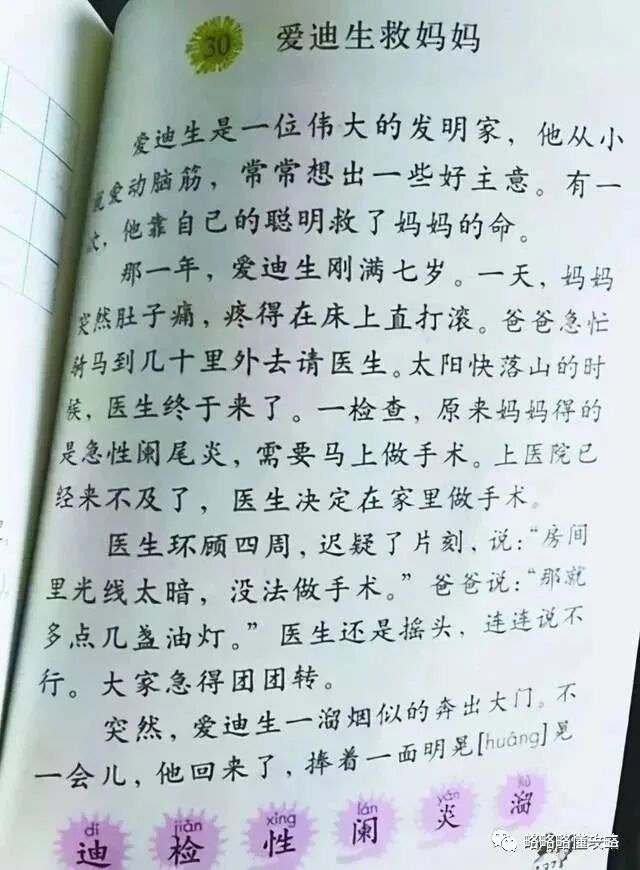 30 爱迪生救妈妈
爱迪生是一位伟大的发明家，他从小
就爱动脑筋，常常想出一些好主意。有一
次，他靠自己的聪明救了妈妈的命。
那一年，爱迪生刚满七岁。一天，妈妈
突然肚子痛，疼得在床上直打滚。爸爸急忙
骑马到几十里外去请医生。太阳快落山的时
候，医生终于来了。一检查，原来妈妈得的
是急性阑尾炎，需要马上做手术。上医院已
经来不及了，医生决定在家里做手术。
医生环顾四周，迟疑了片刻，说：“房间
里光线太暗，没法做手术。”爸爸说：“那就
多点几盏油灯。”医生还是摇头，连连说不
行。大家急得团团转。
突然，爱迪生一溜烟似的奔出大门。不
一会儿，他回来了，捧着一面明晃[huǎng]晃
dí jiǎn xìng lán yán liū
迪 检 性 阑 炎 溜
略略略懂攻略